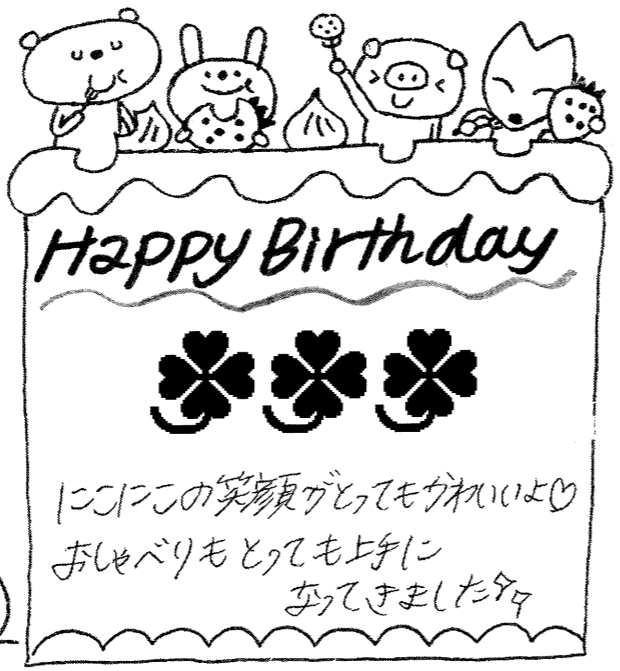 Happy Birthday
にこにこの笑顔がとってもかわいいよ♡
おしゃべりもとっても上手に
なってきました